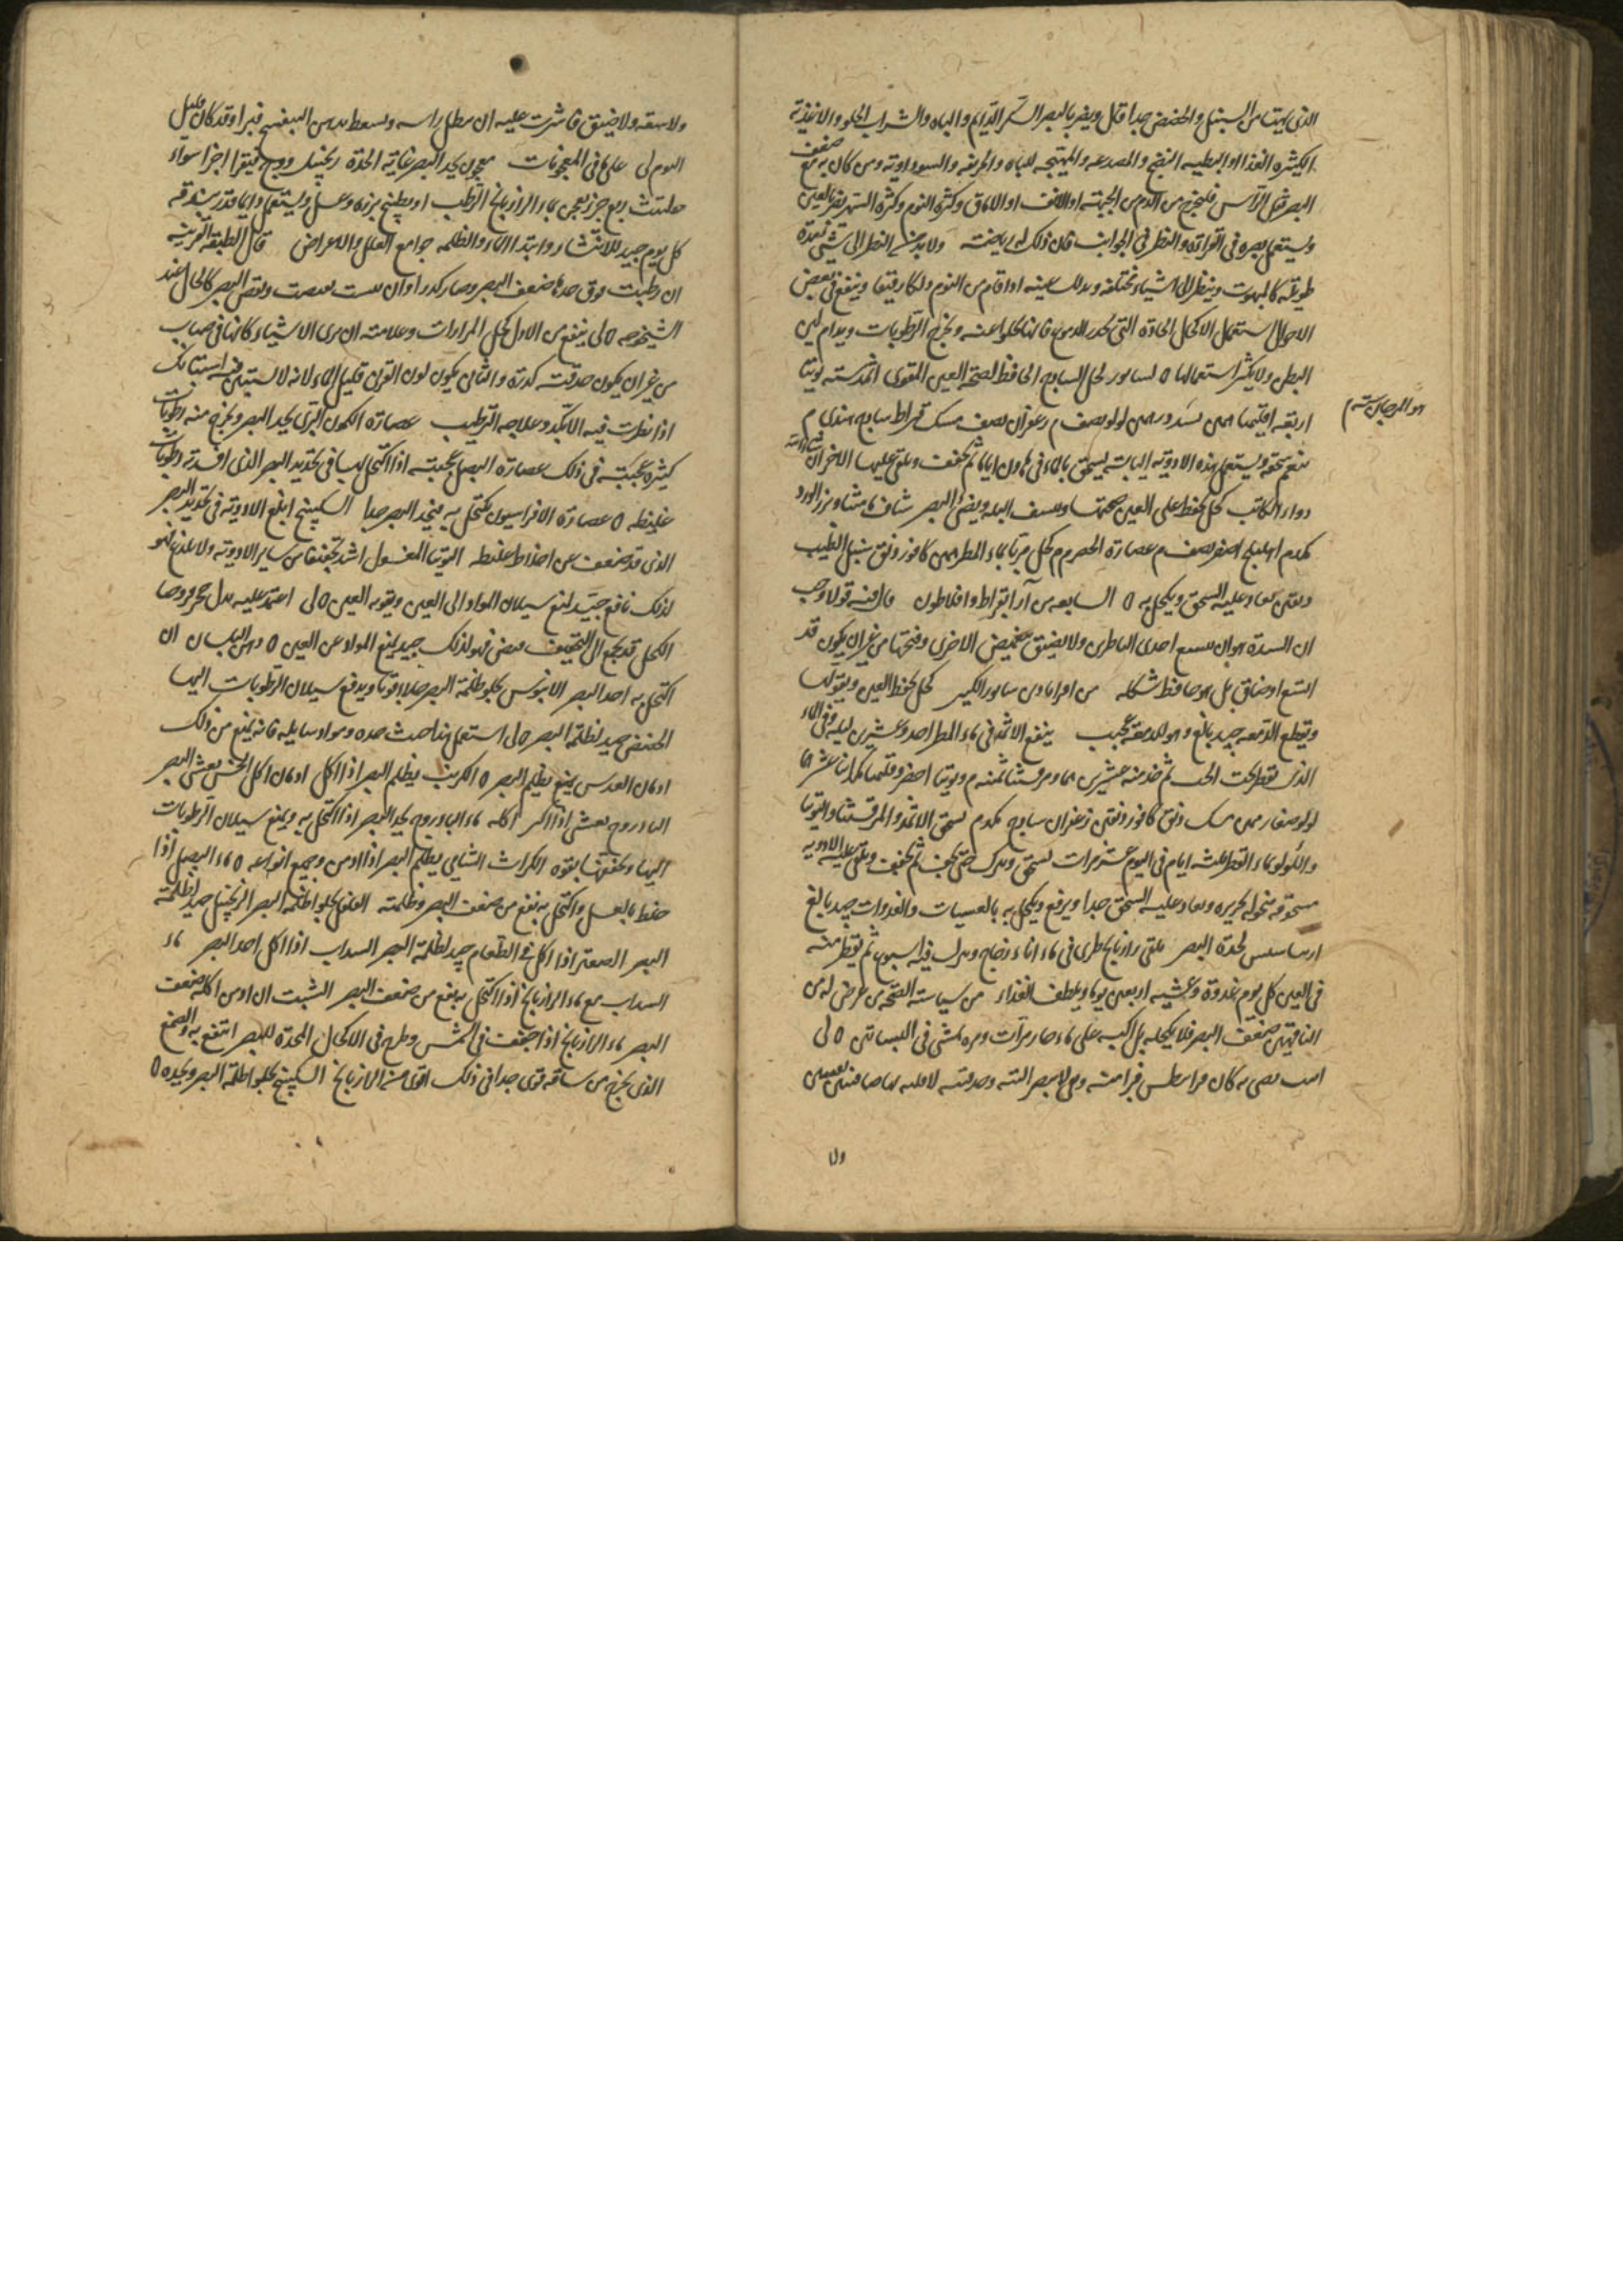 الذى يهيا من السنبل والحضض جدا قال ويضر بالبصر السكر الدايم والباه والشراب الحلو والاغذية
الكثيرة الغذا والبطيه النضج والمصدعه والمهيجه للباه والحريفه والسوداوية ومن كان به مع ضعف
البصر ثقل الرأس فليخرج من الدم من الجبهة او الانف او الاماق وكثرة النوم وكثرة السهر يضر بالعين
ويستعمل بصره فى القراة والنظر فى الجوانب فان ذلك له رياضة ولا يديم النظر الى شئ مدة
طويلة كالمبهوت وينظر الى اشياء مختلفه ويدلك عينيه اذا قام من النوم دلكا رقيقا وينفع فى بعض
الاحوال استعمال الاكحال الحادة التى تحدر الدموع فانها تجلوا عنه وتخرج الرطوبات ويدام لين
البطن ولا يكثر استعمالها ه لسابور كحل السادج الحافظ لصحة العين المقوى اثمد ستة توتيا
اربعة اقليميا درهمين بسد درهمين لولو نصف م زعفران نصف مسك قيراط سادج هندى م
ينعم سحقه ويستعمل هذه الادوية اليابسة يسحق بالماء فى هاون اياما ثم يجفف ويلقى عليها الاخران
دواء الكاتب كحل يحفظ على العين صحتها وينشف البله ويضئ البصر شاف ماميثا وبزر الورد
كدم اهليلج اصفر نصف م عصارة الحصرم م كحل مربا بماء المطر درهمين كافور دانق سنبل الطيب
دانقين يعاد عليه السحق ويكحل به ه السابعه من آرا بقراط وافلاطون قال فيه قولا وجب
ان السدة هو ان يتسع احدى الناظرين ولا يضيق بتغميض الاخرى وفتحها من غير ان يكون قد
اتسع او ضاق بل هو حافظ شكله من اقراباذين سابور الكبير كحل يحفظ العين ويقويها
ويقطع الدمعه جيد بالغ وهو للدمعة عجيب ينقع الاثمد فى ماء المطر احد وعشرين ليله وفى الماء
الذى يقطر تحت الحب ثم خذ منه عشرين درهما ومرقشيثا ثمنيه م وتوتيا اخضر وقليميا كدا اثنا عشر درهما
لولو صغار درهمين مسك دانق كافور دانقين زعفران سادج كدم يسحق الاثمد والمرقشيثا والتوتيا
واللولو بماء القطر ثلثه ايام فى اليوم عشر مرات يسحق ويترك حتى يجف ثم يجفف ويلقى عليه الادويه
مسحوقه منخوله بحريره ويعاد عليه السحق جدا ويرفع ويكحل به بالعشيات والغدوات جيد بالغ
لحدة البصر يلقى رازيانج طرى فى ماء اناء زجاج ويترك فيه اسبوعين ثم يقطر منه
فى العين كل يوم غدوة وعشية اربعين يوما ويلطف الغذاء من سياسة الصحة من عرض له من
الناقهين ضعف البصر فلا يكحله بل اكبه على ماء حار مرات ومره يمشى فى البساتين ه لى
هو المرجان ستة م
ولا
ولا سعه ولا ضيق فاشرت عليه ان ينطل راسه ويسعط بدهن البنفسج فبرا وقد كان قليل
النوم لى على ما فى المعجونات معجون يحد البصر غاية الحدة زنجبيل ووج فيقرا اجزا سواء
حلتيت ربع جز يعجن بماء الرازيانج الرطب او يطبخ بزره وعسل ويستعمل دايما قدر بندقه
كل يوم جيد للانتشار وابتدا الماء والظلمه جوامع العلل والاعراض قال الطبقة القرنيه
ان رطبت فوق حدها ضعف البصر وصار كدرا وان يبست تغضنت ونقص البصر كالحال عند
الشيخوخه ه لى ينفع من الاول كحل المرارات وعلامته ان يرى الاشياء كانها فى ضباب
من غير ان يكون حدقته كدرة والثانى يكون لون القرن قليل الماء لانه لا يستبين فيه استبانك
اذا نظرت فيه الا بكد وعلاجه الترطيب عصارة الكمون البرى يحد البصر ويخرج منه رطوبات
كثيره عجيبة فى ذلك عصارة البصل عجيبة اذا اكتحل بها فى تحديد البصر الذى افسدته رطوبات
غليظه ه عصارة الافراسيون يكتحل به فيحد البصر جدا السكبينج ابلغ الادوية فى تحديد البصر
الذى قد ضعف عن اخلاط غليظه التوتيا المغسول اشد تجفيفا من ساير الادوية ولا يلذع فهو
لذلك نافع جيد لمنع سيلان المواد الى العين وتقويه العين ه لى اعتمد عليه بدل حجر فروحا
الكحل قد يجمع الى التجفيف قبض فهو لذلك جيد يمنع المواد عن العين ه دهن البلسان ان
اكتحل به احد البصر الابنوس يجلو ظلمة البصر جلاء قويا ويدفع سيلان الرطوبات اليها
الحضض جيد لظلمة البصر ه لى استعمل هذا حيث حده ومواد سايله فانه يمنع من ذلك
ادمان العدس يظلم البصر ه الكرنب يظلم البصر اذا اكل ادمان اكل الخس يعشى البصر
الباذروج يعشى اذا اكثر اكله ماء الباذروج يحد البصر اذا اكتحل به ويمنع سيلان الرطوبات
اليها ويجففها بقوه الكراث الشامى يظلم البصر اذا ادمن وجميع انواعه ه ماء البصل اذا
خلط بالعسل واكتحل به نفع من ضعف البصر وظلمته الفلفل يجلو ظلمة البصر الزنجبيل جيد لظلمة
البصر الصعتر اذا اكل فى الطعام جيد لظلمة البصر السداب اذا اكل احد البصر ماء
السداب مع ماء الرازيانج اذا اكتحل به نفع من ضعف البصر الشبت ان ادمن اكله ضعف
البصر ماء الرازيانج اذا جفف فى الشمس وطرح فى الاكحال المحدة للبصر انتفع به والصمغ
الذى يخرج من ساقه قوى جدا فى ذلك اقوى من الرازيانج السكبينج يجلو ظلمة البصر ويحده ه